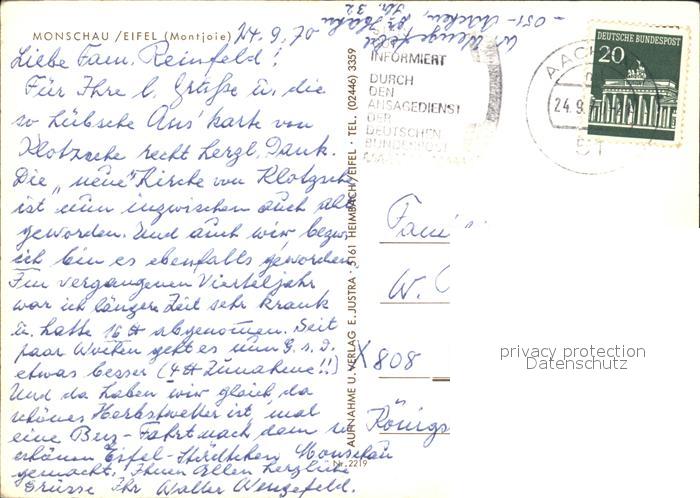 MONSCHAU / EIFEL (Montjoie) 24. 9. 70
Liebe Fam. Reinfeld!
Für Ihre l. Grüße u. die
so hübsche Ans'karte von
Klotzsche recht herzl. Dank.
Die „neue" Kirche von Klotzsche
ist nun inzwischen auch alt
geworden. Und auch wir bezw.
ich bin es ebenfalls geworden.
Im vergangenen Vierteljahr
war ich längere Zeit sehr krank
u. hatte 16 ℔ abgenommen. Seit
paar Wochen geht es nun G. s. D.
etwas besser (4 ℔ Zunahme!!)
Und da haben wir gleich, da
schönes Herbstwetter ist, mal
eine Bus-Fahrt nach dem so
schönen Eifel-Städtchen Monschau
gemacht. Ihnen Allen herzliche
Grüsse Ihr Walter Wengefeld.
AUFNAHME U. VERLAG E. JUSTRA, 5161 HEIMBACH/EIFEL · TEL. (02446) 3359
Nr. 2219
W. Wengefeld
- 051 - Aachen,
32
INFORMIERT
DURCH
DEN
ANSAGEDIENST
DER
DEUTSCHEN
BUNDESPOST
AACH
24.9.
51
DEUTSCHE BUNDESPOST
20
Fami
W.
X 808
Königs
privacy protection
Datenschutz